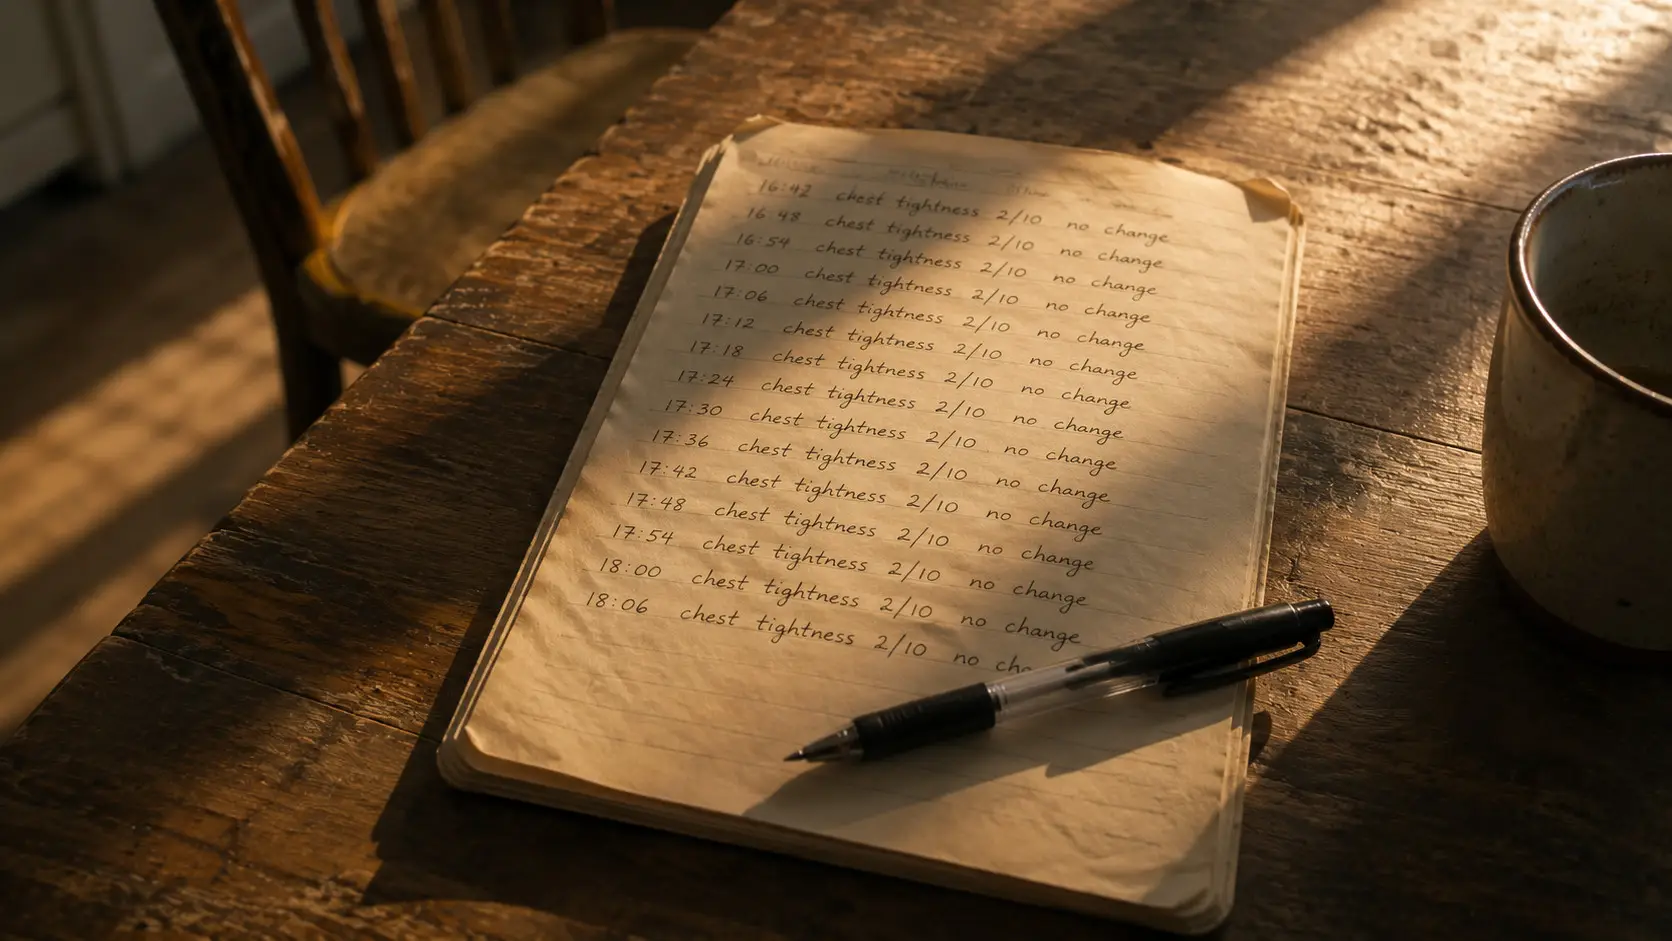 16:42 chest tightness 2/10 no change
16:48 chest tightness 2/10 no change
16:54 chest tightness 2/10 no change
17:00 chest tightness 2/10 no change
17:06 chest tightness 2/10 no change
17:12 chest tightness 2/10 no change
17:18 chest tightness 2/10 no change
17:24 chest tightness 2/10 no change
17:30 chest tightness 2/10 no change
17:36 chest tightness 2/10 no change
17:42 chest tightness 2/10 no change
17:48 chest tightness 2/10 no change
17:54 chest tightness 2/10 no change
18:00 chest tightness 2/10 no change
18:06 chest tightness 2/10 no